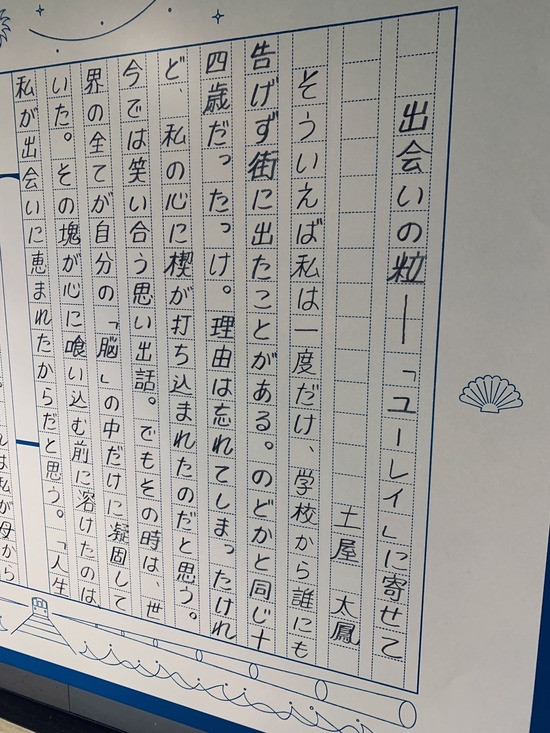 出会いの粒ー「ユーレイ」に寄せて
土屋 太鳳
そういえば私は一度だけ、学校から誰にも
告げず街に出たことがある。のどかと同じ十
四歳だったっけ。理由は忘れてしまったけれ
ど、私の心に楔が打ち込まれたのだと思う。
今では笑い合う思い出話。でもその時は、世
界の全てが自分の「脳」の中だけに凝固して
いた。その塊が心に喰い込む前に溶けたのは、
私が出会いに恵まれたからだと思う。「人生
は私が母から